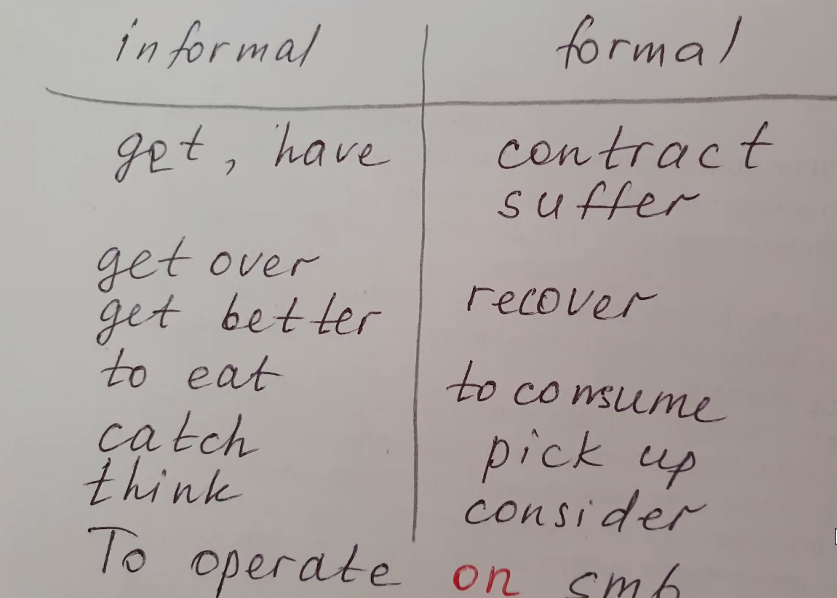 informal formal
get, have contract
suffer
get over
get better recover
to eat to consume
catch pick up
think consider
To operate on smb